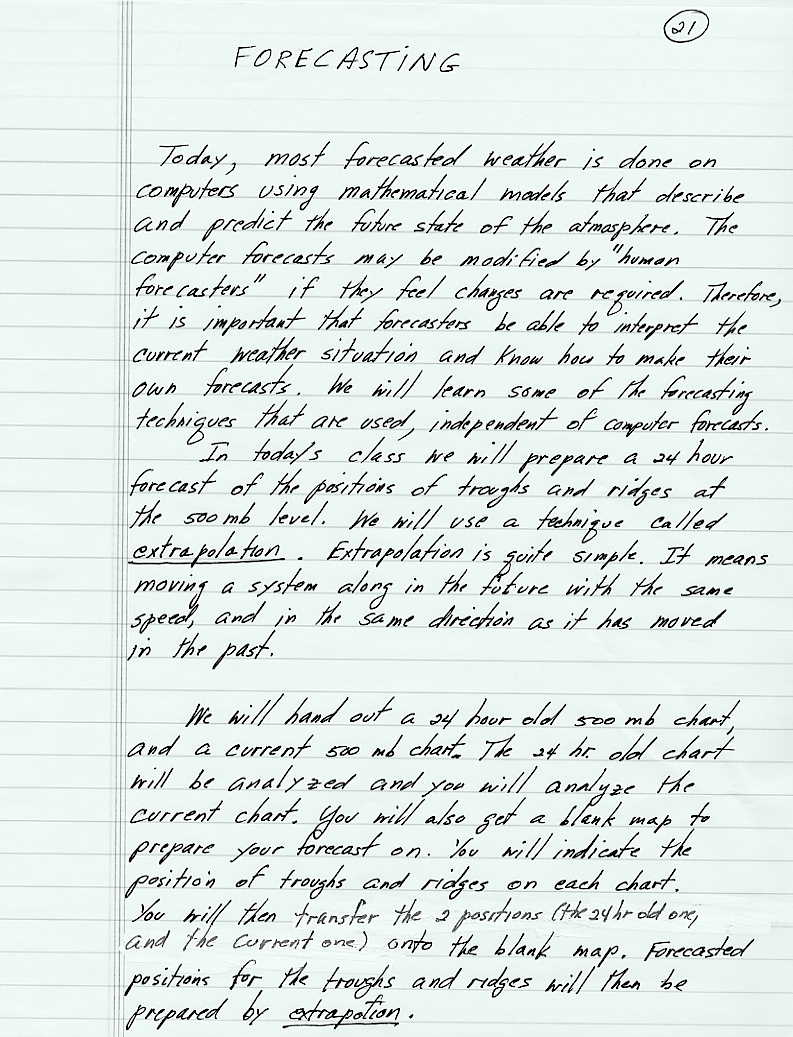 21
FORECASTING
Today, most forecasted weather is done on
computers using mathematical models that describe
and predict the future state of the atmosphere. The
computer forecasts may be modified by "human
forecasters" if they feel changes are required. Therefore,
it is important that forecasters be able to interpret the
current weather situation and know how to make their
own forecasts. We will learn some of the forecasting
techniques that are used, independent of computer forecasts.
In today's class we will prepare a 24 hour
forecast of the positions of troughs and ridges at
the 500 mb level. We will use a technique called
extrapolation. Extrapolation is quite simple. It means
moving a system along in the future with the same
speed, and in the same direction as it has moved
in the past.
We will hand out a 24 hour old 500 mb chart,
and a current 500 mb chart. The 24 hr. old chart
will be analyzed and you will analyze the
current chart. You will also get a blank map to
prepare your forecast on. You will indicate the
position of troughs and ridges on each chart.
You will then transfer the 2 positions (the 24 hr old one,
and the current one) onto the blank map. Forecasted
positions for the troughs and ridges will then be
prepared by extrapotion.